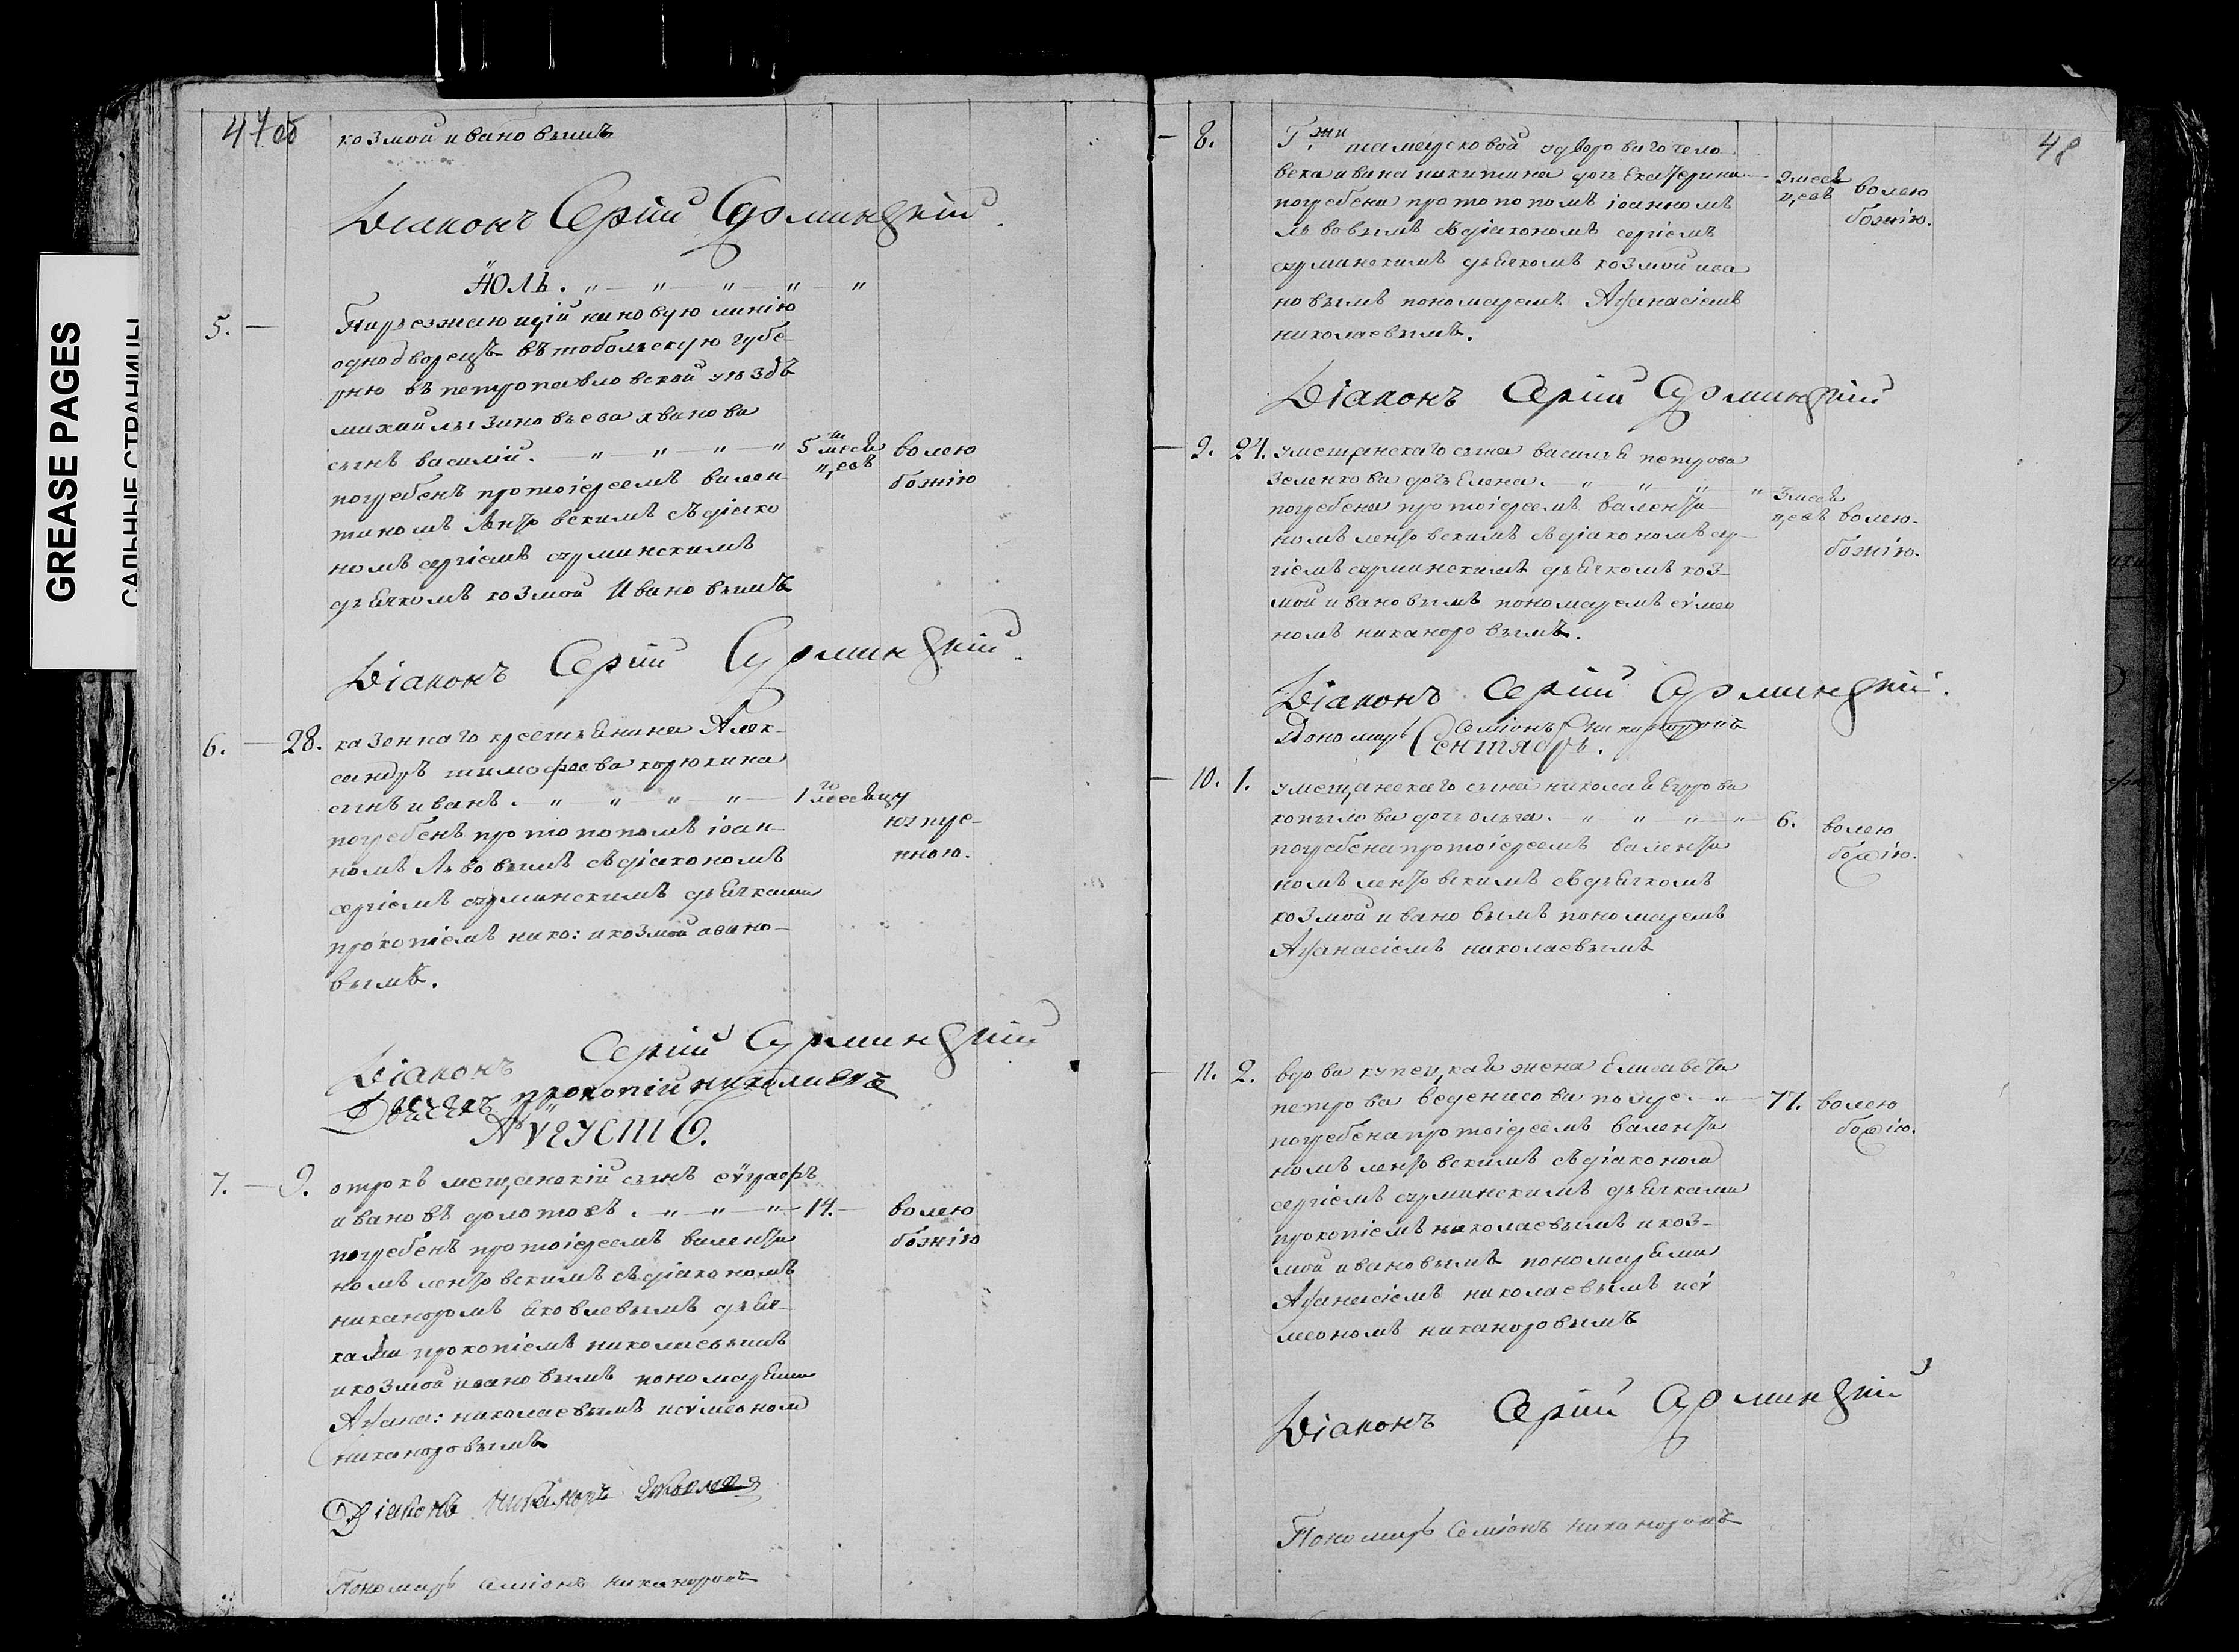 GREASE PAGES
САЛЬНЫЕ СТРАНИЦЫ
47об
козмой ивановымъ
Діаконъ Сергій Сурминскій.
Июль. " — " — " — " — "
5. — Переезжающій на новую линію
однодворецъ въ тобольскую губе-
рню въ петропавловской уездъ
михайлы зиновьева иванова
сынъ василий. — " — " — " — " 5ти меся волею
цевъ божію
погребенъ протоіереемъ вален-
тиномъ съ діако
номъ сергіемъ сурминскимъ
дьячкомъ козмой Ивановымъ
Діаконъ Сергій Сурминскій.
6. — 28. казеннаго крестьянина Алек-
сандръ тимофеева корюкина
сынъ иванъ. — " — " — " — " — 1го месяцу
погребенъ протопопомъ іоан-
номъ Львовымъ съ діакономъ
сергіемъ сурминскимъ дьячками
прокопіемъ нико: и козмой ивано-
вымъ.
Діаконъ Сергій Сурминскій
Дьячекъ прокопій николаевъ
Аѵгустъ.
7. — 9. отрокъ мещанскій сынъ еѵграфъ
ивановъ долотовъ. — " — " — " — 14. — волею
божію
погребенъ протоіереемъ валенти
номъ съ діакономъ
никаноромъ яковлевымъ дьяч-
ками прокопіемъ николаевымъ
и козмой ивановымъ пономарями
Афана: николаевымъ и сѵмеоном
никаноровымъ
Діаконъ Никаноръ Яковлевъ
Пономарь Семіонъ никаноровъ
48
8. Гжи у дворового чело
века ивана никитина дочь Екатерина — 9 меся волею
цевъ божію.
погребена протопопомъ іоанномъ
львовымъ съ діакономъ сергіемъ
сурминскимъ дьячкомъ козмой ива
новымъ пономаремъ Афанасіемъ
николаевымъ.
Діаконъ Сергій Сурминскій
9. 24. у мещанскаго сына василья петрова
зеленкова дочь Елена. — " — " — " — " 3 меся
цевъ волею
божію.
погребена протоіереемъ валенти
номъ съ діакономъ сер-
гіемъ сурминскимъ дьячкомъ коз-
мой ивановымъ пономаремъ сѵмео
номъ никаноровымъ.
Діаконъ Сергій Сурминскій.
Пономарь Семіонъ Никаноровъ
Сентябрь.
10. 1. у мещанскаго сына николая Егорова
копылова дочь ольга. — " — " — " — " 6. волею
божію.
погребена протоіереемъ валенти
номъ съ дьячкомъ
козмой ивановымъ пономаремъ
Афанасіемъ николаевымъ
11. 2. вдова купецкая жена Елисавета
петрова веденисова — " — 77. волею
божію.
погребена протоіереемъ валенти
номъ съ діаконом
сергіемъ сурминскимъ дьячками
прокопіемъ николаевымъ и коз-
мой ивановымъ пономарями
Афанасіемъ николаевымъ и сѵ
меономъ никаноровымъ
Діаконъ Сергій Сурминскій
Пономарь Семіонъ никаноровъ